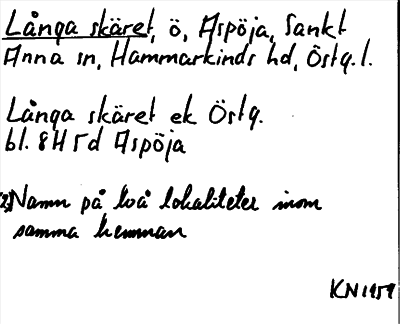 Långa skäret, ö, Aspöja, Sankt
Anna sn, Hammarkinds hd, Östg. l.
Långa skäret ek Östg.
bl. 8H5d Aspöja
2) Namn på två lokaliteter inom
samma hemman
KN 1959